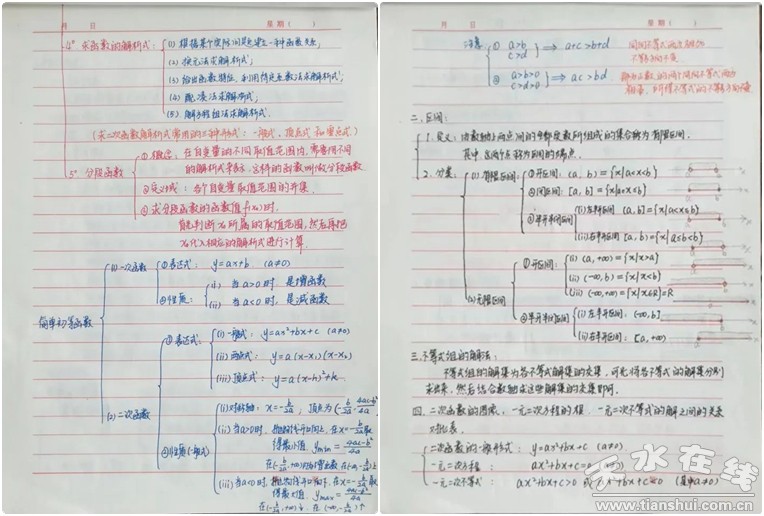 月 日 星期( )
4° 求函数的解析式:
(1) 根据某个实际问题建立一种函数关系;
(2) 换元法求解析式;
(3) 给出函数特征,利用待定系数法求解析式;
(4) 配凑法求解析式;
(5) 解方程组法求解析式.
(求二次函数解析式常用的三种形式:一般式、顶点式和零点式)
3° 分段函数
① 概念:在自变量的不同取值范围内,需要用不同
的解析式来表示,这样的函数叫做分段函数
② 定义域:各个自变量取值范围的并集.
③ 求分段函数的函数值f(x₀)时,
首先判断x₀所属的取值范围,然后再把
x₀代入相应的解析式进行计算.
简单初等函数
(1) 一次函数
① 表达式: y=ax+b (a≠0)
② 性质:
(i) 当a>0时,是增函数
(ii) 当a<0时,是减函数
(2) 二次函数
① 表达式:
(i) 一般式: y=ax²+bx+c (a≠0)
(ii) 两点式: y=a(x-x₁)(x-x₂)
(iii) 顶点式: y=a(x-h)²+k
② 性质(一般式)
(i) 对称轴: x=-b/2a, 顶点为(-b/2a, 4ac-b²/4a
(ii) 当a>0时,抛物线开口向上,在x=-b/2a取
得最小值 ymin=4ac-b²/4a
(iii) 当a<0时,抛物线开口向下,在x=-b/2a取
得最大值 ymax=4ac-b²/4a
在(-b/2a,+∞)↓ 在(-∞,-b/2a)↑
月 日 星期( )
注意:
① a>b
c>d
⇒ a+c>b+d
② a>b>0
c>d>0
⇒ ac>bd
二、区间:
1. 定义:由数轴上两点间的全部实数所组成的集合称为有限区间,
其中这两个点称为区间的端点.
2. 分类:
(1) 有限区间
① 开区间: (a, b)={x|a<x<b}
② 闭区间: [a, b]={x|a≤x≤b}
③ 半开半闭区间
(ii) 右半开区间 [a, b)={x|a≤x<b}
(2) 无限区间
① 开区间:
(i) (a, +∞)={x|x>a}
(ii) (-∞, b)={x|x<b}
(iii) (-∞,+∞)={x|x∈R}=R
② 半开半闭区间:
(i) 左半开区间: (-∞, b]
(ii) 右半开区间: [a, +∞)
三、不等式组的解法:
不等式组的解集为各不等式解集的交集,可先将各不等式的解集分别
求出来,然后结合数轴求这些解集的交集即可.
四、二次函数的图象、一元二次方程的根、一元二次不等式的解之间的关系
对比表.
二次函数的一般形式: y=ax²+bx+c (a≠0)
一元二次方程: ax²+bx+c=0
一元二次不等式: ax²+bx+c>0 或 ax²+bx+c<0 (其中a≠0)
天水在线
www.tianshui.com.cn